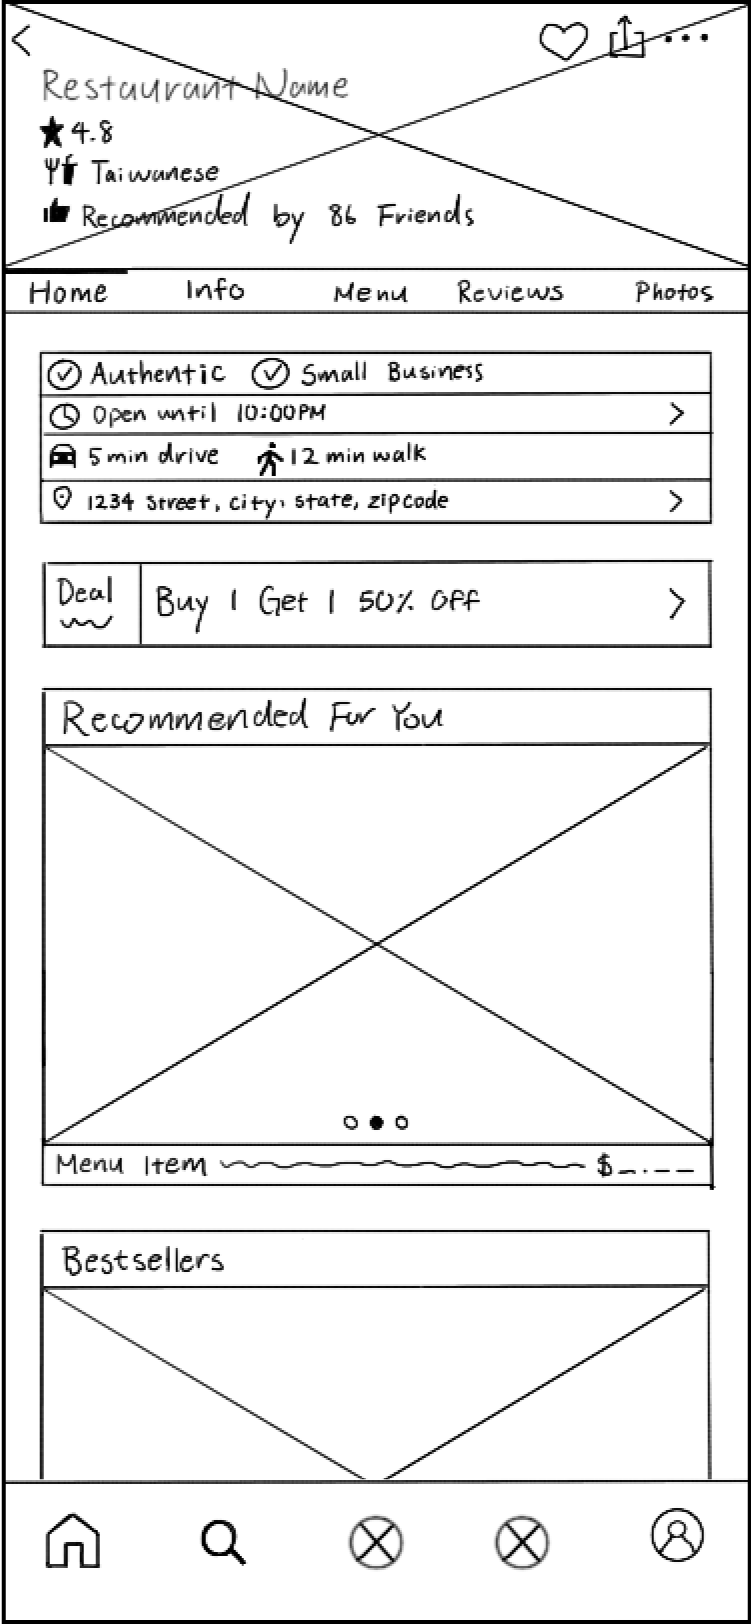 Restaurant Name
4.8
Taiwanese
Recommended by 86 Friends
Home Info Menu Reviews Photos
Authentic Small Business
Open until 10:00PM
5 min drive 12 min walk
1234 Street, city, state, zipcode
Deal Buy 1 Get 1 50% Off
Recommended For You
Menu Item $_.__
Bestsellers